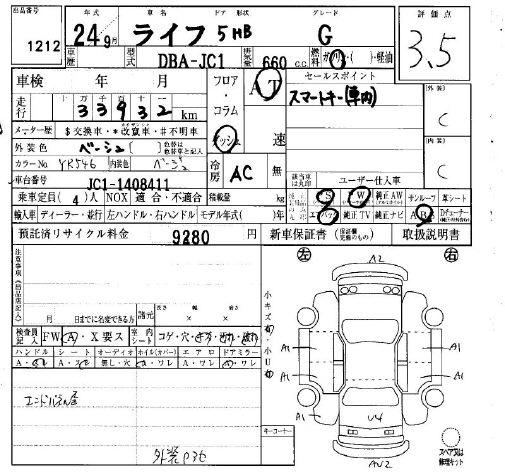 出品番号 年式 車名 ドア 形状 グレード 評価点
1212 24年9月 ライフ 5HB G 3.5
車歴 型式 DBA-JC1 排気量 660 c.c. 燃料 ガソリン・( )・軽油
車検 年 月 フロア・コラム AT セールスポイント
走行 33932 km スマートキー(車内) 外装 C
メーター歴 $交換車・*改竄車・#不明車 インパネ 速 内装 C
外装色 ベージュ( )
カラーNo. YR546 内装色 ベージュ 冷房 AC 無 ユーザー仕入車
車台番号 JC1-1408411
乗車定員( 4 )人 NOX 適合・不適合 積載量 kg PS PW 純正AW サンルーフ 革シート
輸入車 ディーラー・並行 左ハンドル・右ハンドル モデル年式( ) エアバッグ 純正TV 純正ナビ ABS
預託済リサイクル料金 9280 新車保証書 取扱説明書
注意事項(出品店記入) 左 右
A2
月 日までに名変できる方 諸元 長さ 幅 高さ
検査員記入 FW A・X要ス 室内シート コゲ・穴・
ハンドル シート オーディオ ホイル(カバー) エアロ ドアミラー
小キズ 小凹
A1 A1
A1 A1
A1 A1
U4
エンドパネル歪
外装P36
キーコーナー
AW2
スペア又は修理キット